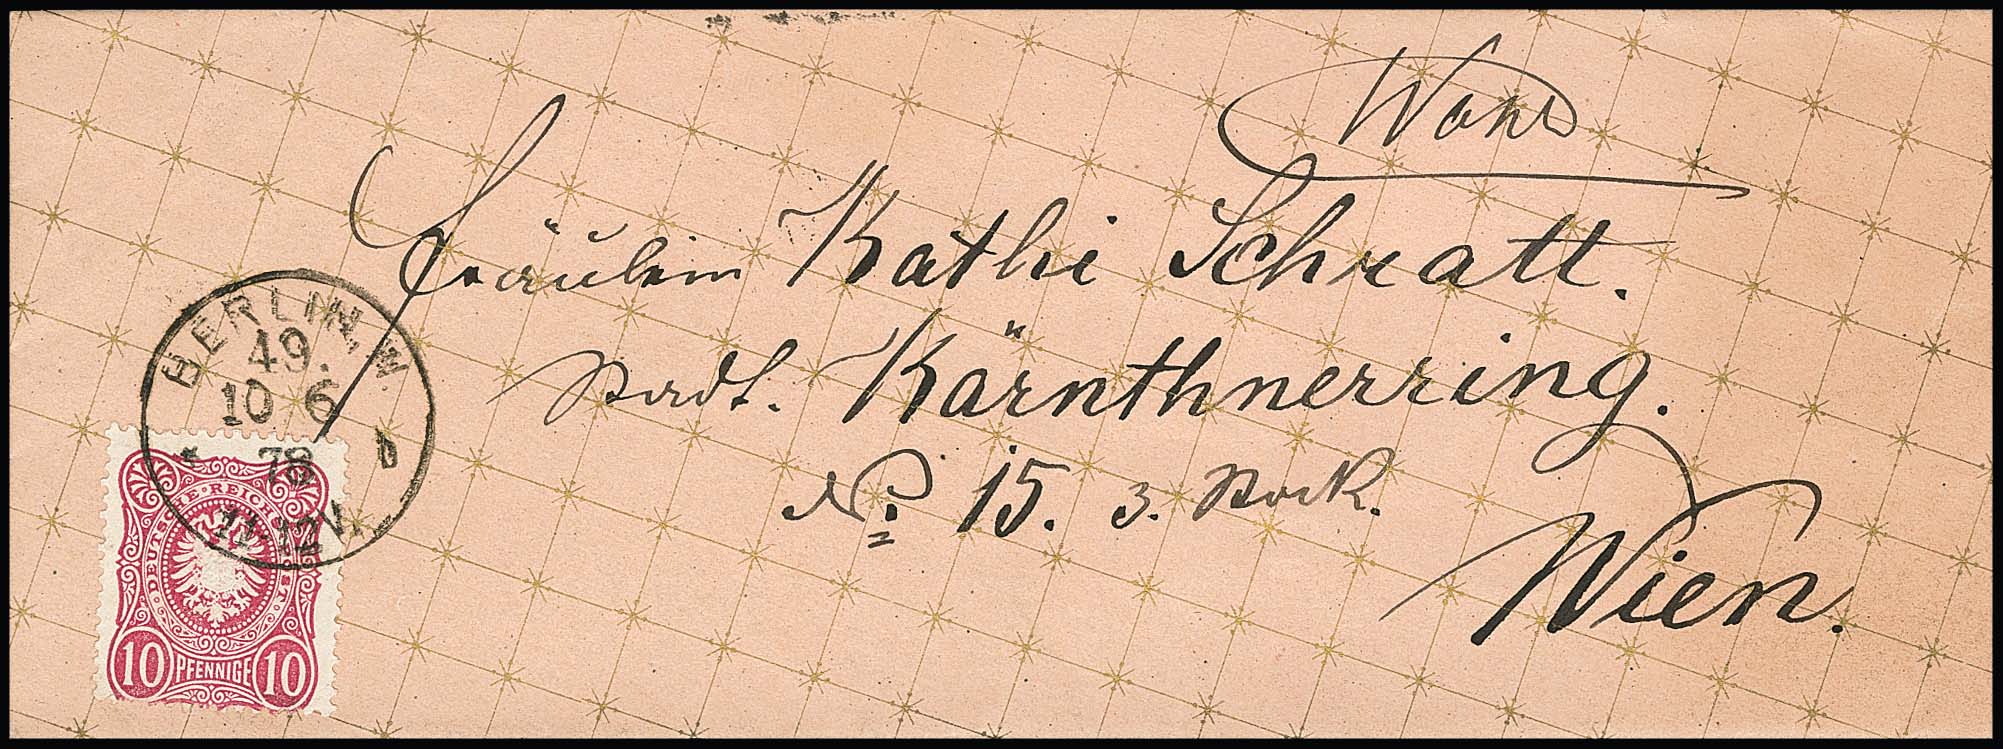 Wohl
Fräulein Kathi Schratt.
Stadt. Kärnthnerring.
No. 15. 3. Stock.
Wien.
BERLIN, W.
49.
10 6
78
11-12V.
* b
DEUTSCHE REICHS-POST
10 PFENNIGE 10